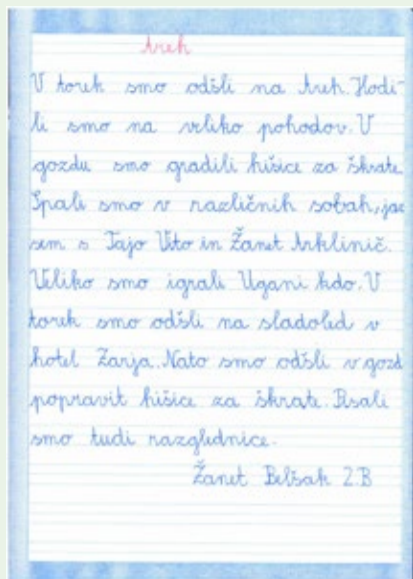 Areh
V torek smo odšli na Areh. Hodi-
li smo na veliko pohodov. V
gozdu smo gradili hišice za škrate.
Spali smo v različnih sobah, jaz
sem s Tajo Vito in Žanet Arklinič.
Veliko smo igrali Ugani kdo. V
torek smo odšli na sladoled v
hotel Zarja. Nato smo odšli v gozd
popravit hišice za škrate. Pisali
smo tudi razglednice.
Žanet Belšak 2.B